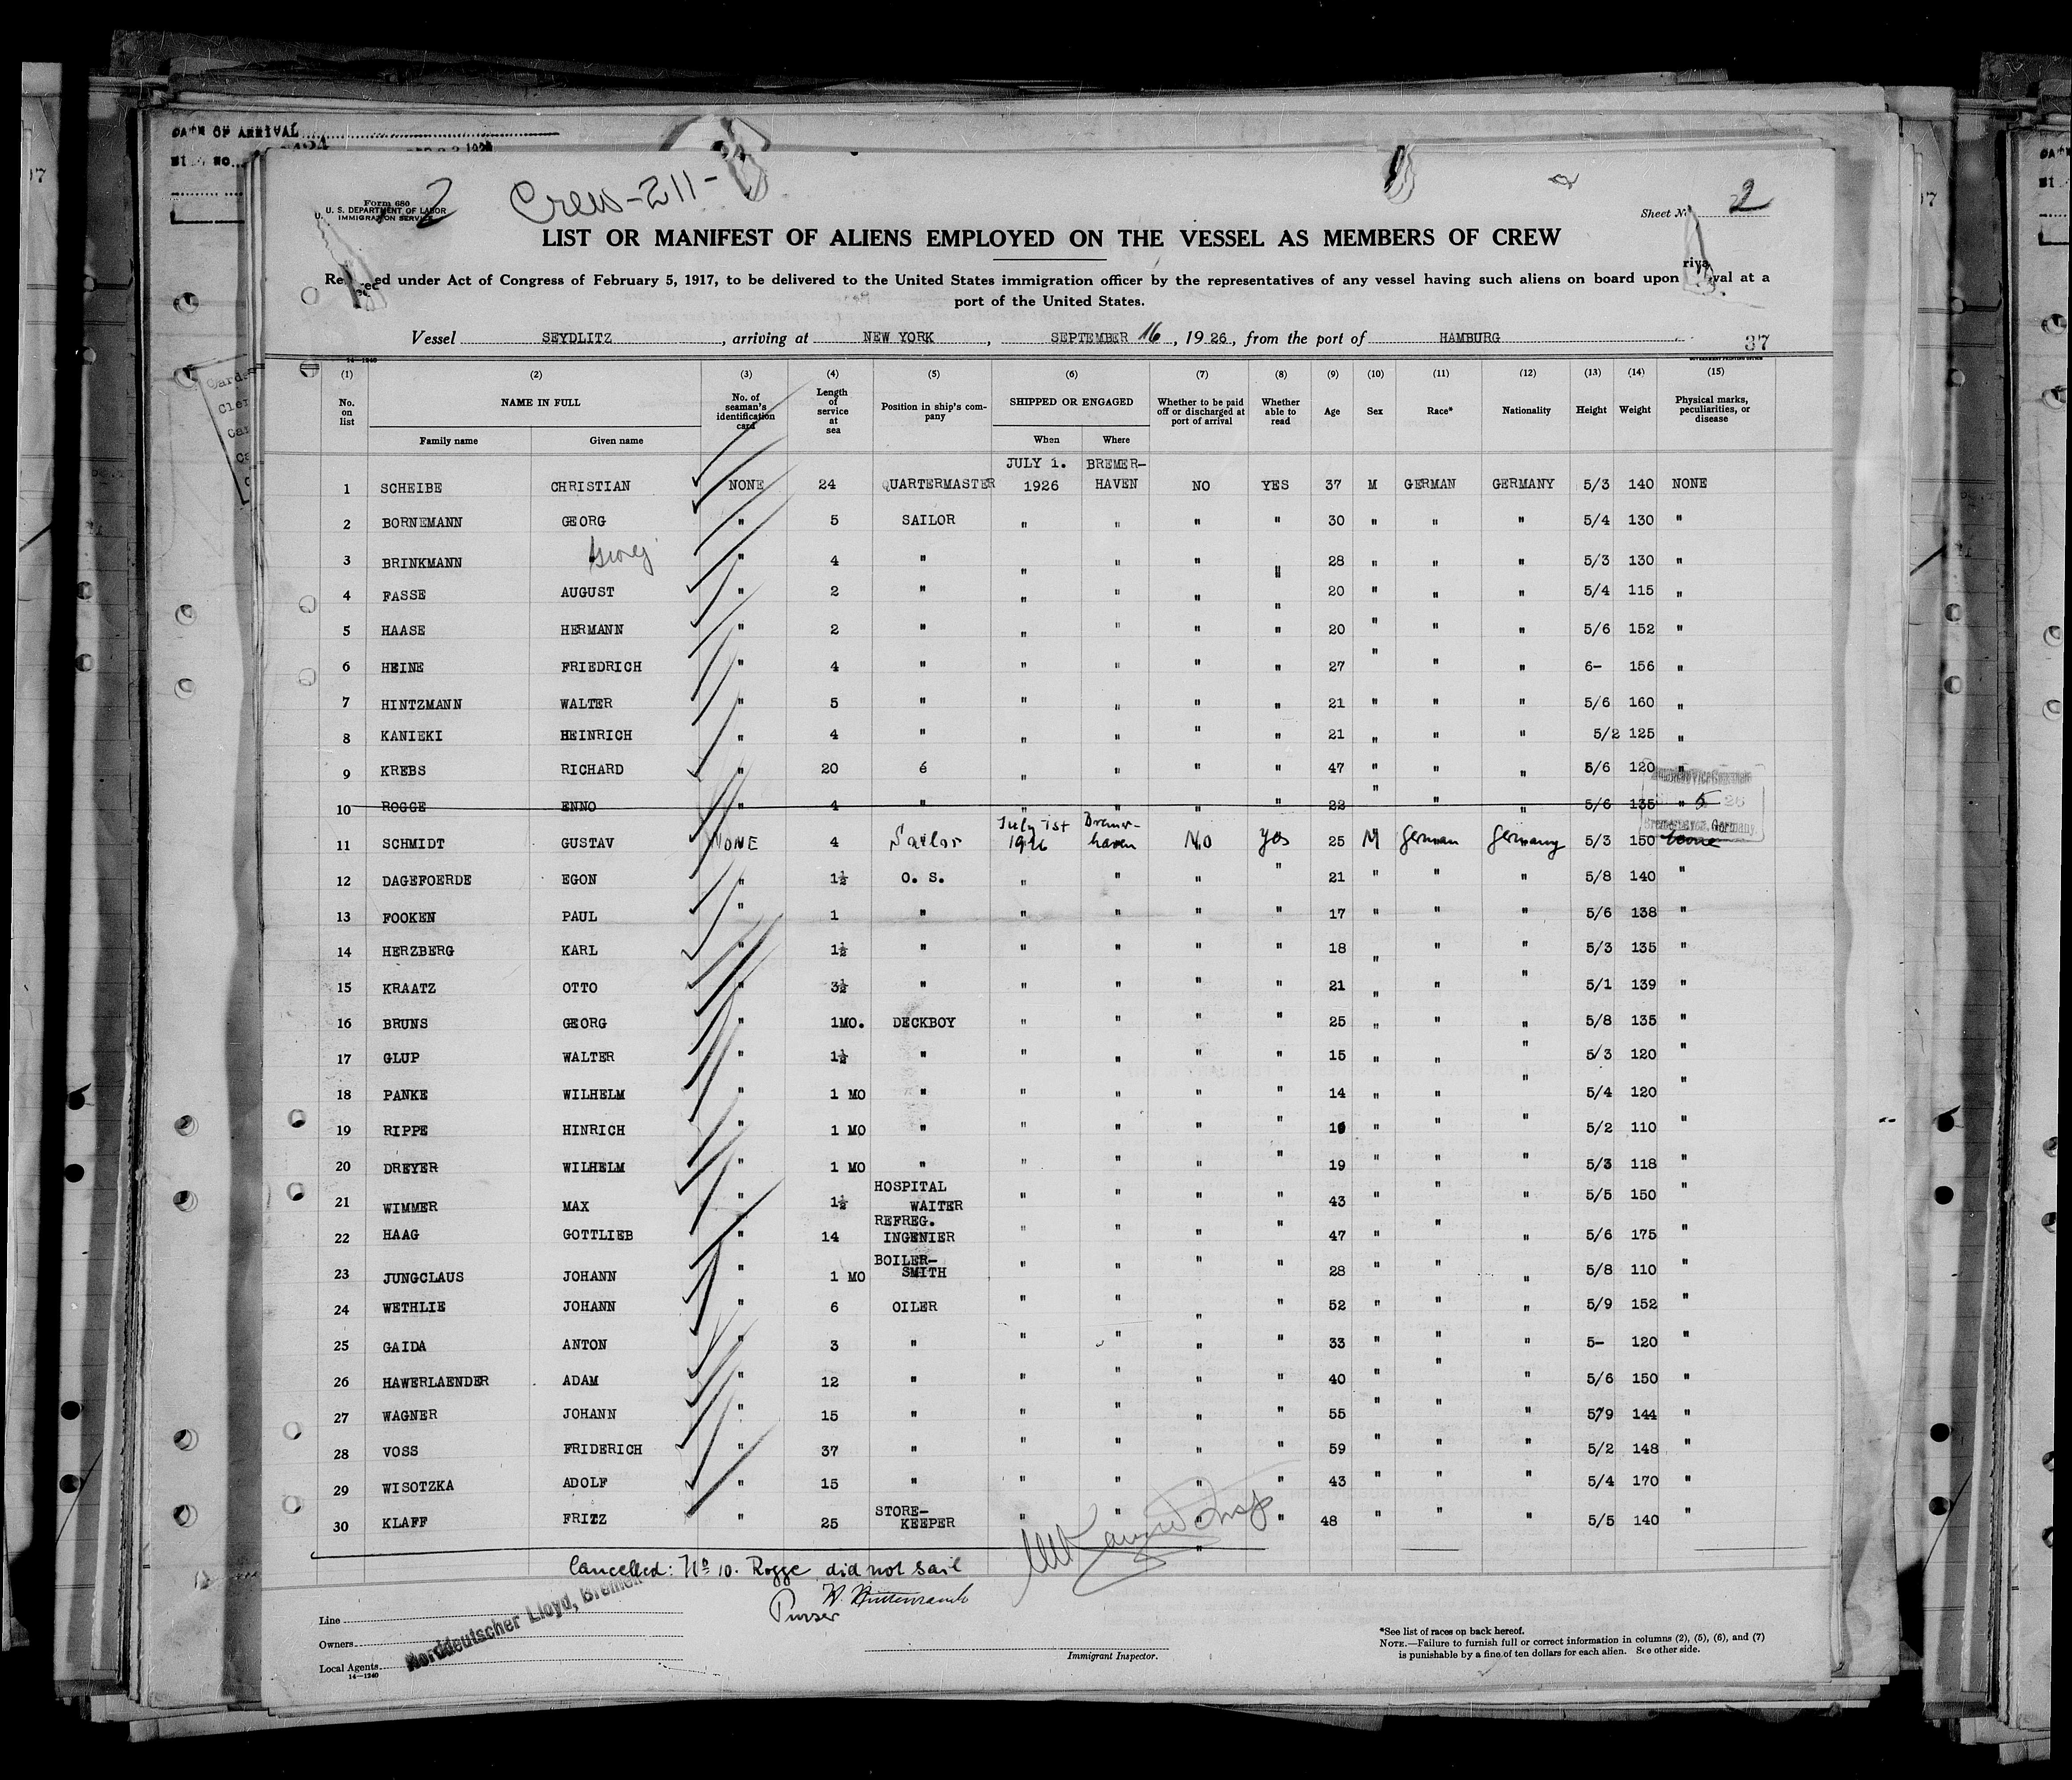 DATE OF ARRIVAL
Form 680
U. S. DEPARTMENT OF LABOR
IMMIGRATION SERVICE
2
Crew-211-
Sheet No. 2
LIST OR MANIFEST OF ALIENS EMPLOYED ON THE VESSEL AS MEMBERS OF CREW
Required under Act of Congress of February 5, 1917, to be delivered to the United States immigration officer by the representatives of any vessel having such aliens on board upon arrival at a
port of the United States.
Vessel SEYDLITZ, arriving at NEW YORK, SEPTEMBER 16, 1926, from the port of HAMBURG
37
14-1240
GOVERNMENT PRINTING OFFICE
(1) (2) (3) (4) (5) (6) (7) (8) (9) (10) (11) (12) (13) (14) (15)
No. on list NAME IN FULL No. of seaman's identification card Length of service at sea Position in ship's company SHIPPED OR ENGAGED Whether to be paid off or discharged at port of arrival Whether able to read Age Sex Race* Nationality Height Weight Physical marks, peculiarities, or disease
Family name Given name When Where
JULY 1. BREMER-
1 SCHEIBE CHRISTIAN NONE 24 QUARTERMASTER 1926 HAVEN NO YES 37 M GERMAN GERMANY 5/3 140 NONE
2 BORNEMANN GEORG " 5 SAILOR " " " " 30 " " " 5/4 130 "
3 BRINKMANN Georg " 4 " " " " " 28 " " " 5/3 130 "
4 FASSE AUGUST " 2 " " " " " 20 " " " 5/4 115 "
5 HAASE HERMANN " 2 " " " " " 20 " " " 5/6 152 "
6 HEINE FRIEDRICH " 4 " " " " " 27 " " " 6- 156 "
7 HINTZMANN WALTER " 5 " " " " " 21 " " " 5/6 160 "
8 KANIEKI HEINRICH " 4 " " " " " 21 " " " 5/2 125 "
9 KREBS RICHARD " 20 6 " " " " 47 " " " 5/6 120 "
10 ROGGE ENNO " 4 " " " " " 22 " " " 5/6 135 "
July 1st Bremer-
11 SCHMIDT GUSTAV NONE 4 Sailor 1926 haven No yes 25 M German Germany 5/3 150 None
12 DAGEFOERDE EGON " 1½ O. S. " " " " 21 " " " 5/8 140 "
13 FOOKEN PAUL " 1 " " " " " 17 " " " 5/6 138 "
14 HERZBERG KARL " 1½ " " " " " 18 " " " 5/3 135 "
15 KRAATZ OTTO " 3½ " " " " " 21 " " " 5/1 139 "
16 BRUNS GEORG " 1MO. DECKBOY " " " " 25 " " " 5/8 135 "
17 GLUP WALTER " 1½ " " " " " 15 " " " 5/3 120 "
18 PANKE WILHELM " 1 MO " " " " " 14 " " " 5/4 120 "
19 RIPPE HINRICH " 1 MO " " " " " " " " 5/2 110 "
20 DREYER WILHELM " 1 MO " " " " " 19 " " " 5/3 118 "
21 WIMMER MAX " 1½ HOSPITAL WAITER " " " " 43 " " " 5/5 150 "
22 HAAG GOTTLIEB " 14 REFREG. INGENIER " " " " 47 " " " 5/6 175 "
23 JUNGCLAUS JOHANN " 1 MO BOILER-SMITH " " " " 28 " " " 5/8 110 "
24 WETHLIE JOHANN " 6 OILER " " " " 52 " " " 5/9 152 "
25 GAIDA ANTON " 3 " " " " " 33 " " " 5- 120 "
26 HAWERLAENDER ADAM " 12 " " " " " 40 " " " 5/6 150 "
27 WAGNER JOHANN " 15 " " " " " 55 " " " 5/9 144 "
28 VOSS FRIDERICH " 37 " " " " " 59 " " " 5/2 148 "
29 WISOTZKA ADOLF " 15 " " " " " 43 " " " 5/4 170 "
30 KLAFF FRITZ " 25 STORE-KEEPER " " " " 48 " " " 5/5 140 "
Cancelled: No 10. Rogge did not sail
Purser
Line
Owners
Local Agents
14-1240
Norddeutscher Lloyd, Bremen
Immigrant Inspector.
*See list of races on back hereof.
NOTE.—Failure to furnish full or correct information in columns (2), (5), (6), and (7)
is punishable by a fine of ten dollars for each alien. See other side.